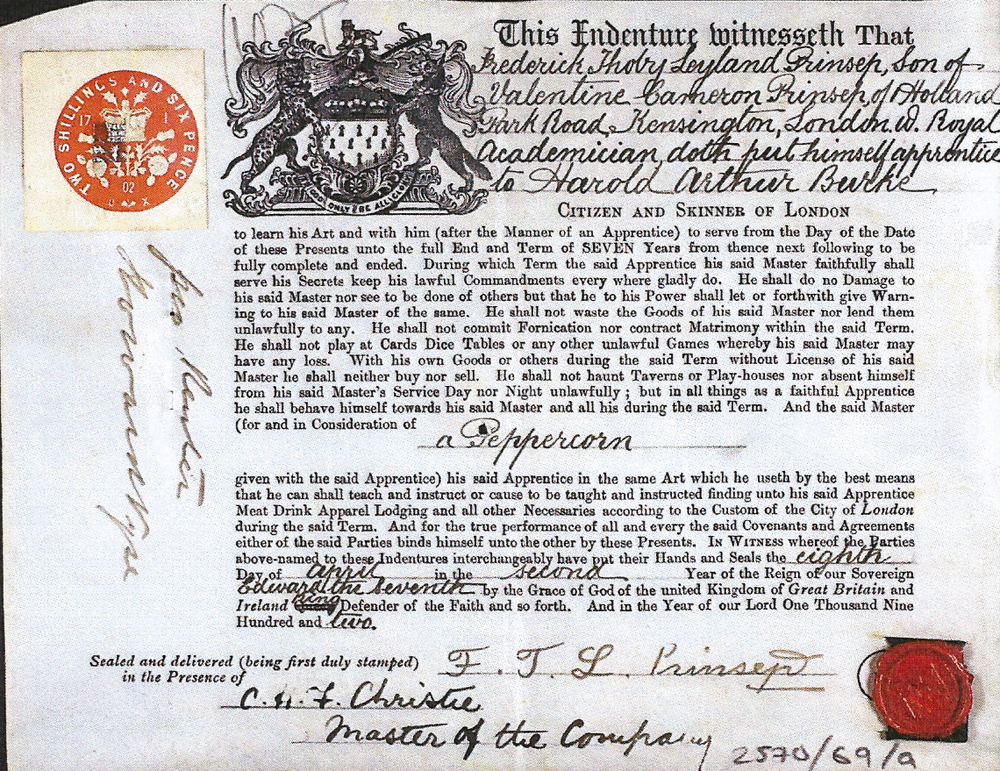 This Indenture witnesseth That
Frederick Thoby Leyland Prinsep, Son of
Valentine Cameron Prinsep of Holland
Park Road, Kensington, London. W. Royal
Academician, doth put himself apprentice
to Harold Arthur Burke
CITIZEN AND SKINNER OF LONDON
to learn his Art and with him (after the Manner of an Apprentice) to serve from the Day of the Date
of these Presents unto the full End and Term of SEVEN Years from thence next following to be
fully complete and ended. During which Term the said Apprentice his said Master faithfully shall
serve his Secrets keep his lawful Commandments every where gladly do. He shall do no Damage to
his said Master nor see to be done of others but that he to his Power shall let or forthwith give Warn-
ing to his said Master of the same. He shall not waste the Goods of his said Master nor lend them
unlawfully to any. He shall not commit Fornication nor contract Matrimony within the said Term.
He shall not play at Cards Dice Tables or any other unlawful Games whereby his said Master may
have any loss. With his own Goods or others during the said Term without License of his said
Master he shall neither buy nor sell. He shall not haunt Taverns or Play-houses nor absent himself
from his said Master's Service Day nor Night unlawfully ; but in all things as a faithful Apprentice
he shall behave himself towards his said Master and all his during the said Term. And the said Master
(for and in Consideration of
a Peppercorn
given with the said Apprentice) his said Apprentice in the same Art which he useth by the best means
that he can shall teach and instruct or cause to be taught and instructed finding unto his said Apprentice
Meat Drink Apparel Lodging and all other Necessaries according to the Custom of the City of London
during the said Term. And for the true performance of all and every the said Covenants and Agreements
either of the said Parties binds himself unto the other by these Presents. IN WITNESS whereof the Parties
above-named to these Indentures interchangeably have put their Hands and Seals the eighth
Day of April in the second Year of the Reign of our Sovereign
Edward the Seventh by the Grace of God of the united Kingdom of Great Britain and
Ireland King Defender of the Faith and so forth. And in the Year of our Lord One Thousand Nine
Hundred and two.
Sealed and delivered (being first duly stamped)
in the Presence of
F. T. L. Prinsep
C. H. F. Christie
Master of the Company
2570/69/a
TWO SHILLINGS AND SIX PENCE
17 1
02